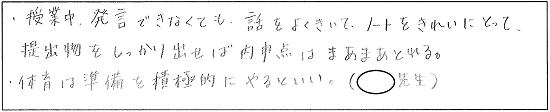 ・授業中、発言できなくても、話をよくきいて、ノートをきれいにとって、
提出物をしっかり出せば内申点はまあまあとれる。
・体育は準備を積極的にやるといい。(◯先生)